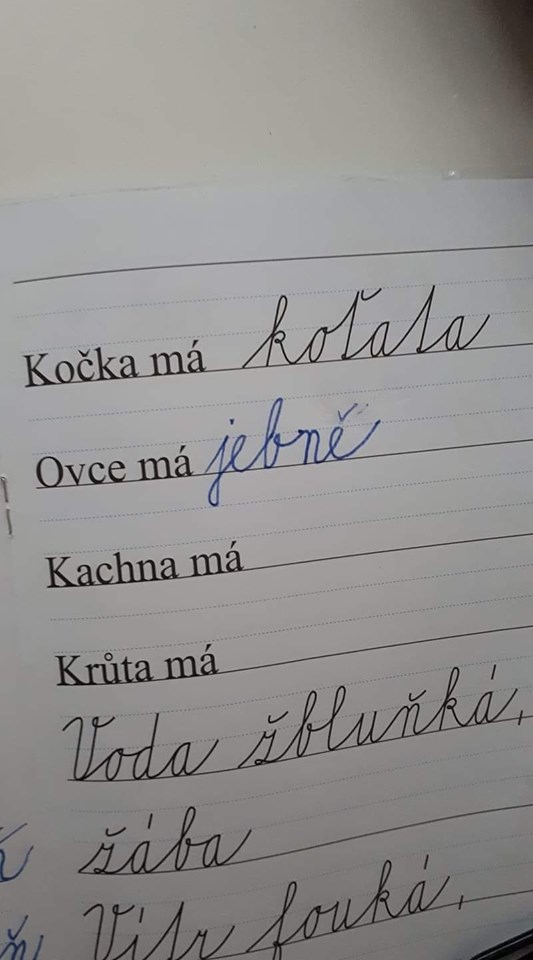 Kočka má koťata
Ovce má jebně
Kachna má
Krůta má
Voda žbluňká,
žába
Vítr fouká,